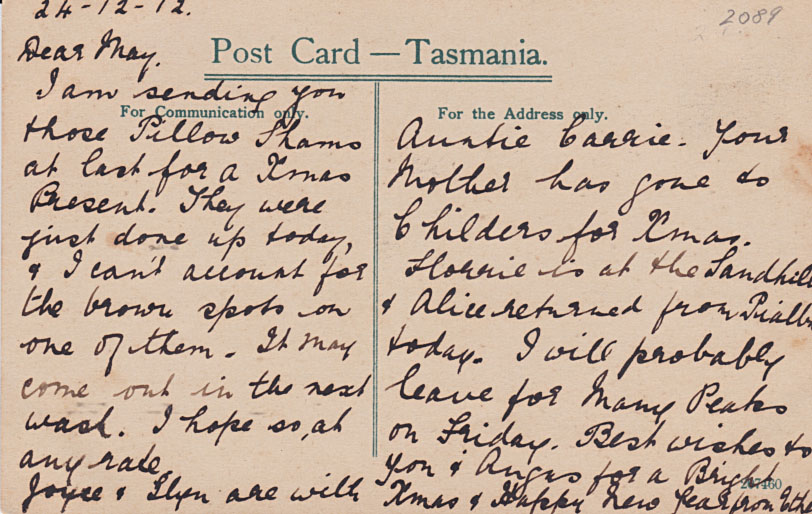 24-12-12.
2089
Post Card — Tasmania.
For Communication only.
For the Address only.
Dear May,
I am sending you
those Pillow Shams
at last for a Xmas
Present. They were
just done up today,
& I can't account for
the brown spots on
one of them. It may
come out in the next
wash. I hope so, at
any rate.
Joyce & Glyn are with
Auntie Carrie. Your
Mother has gone to
Childers for Xmas.
Florrie is at the Sandhills
& Alice returned from
today. I will probably
leave for Many Peaks
on Friday. Best wishes to
you & Angus for a Bright
Xmas & Happy New Year from